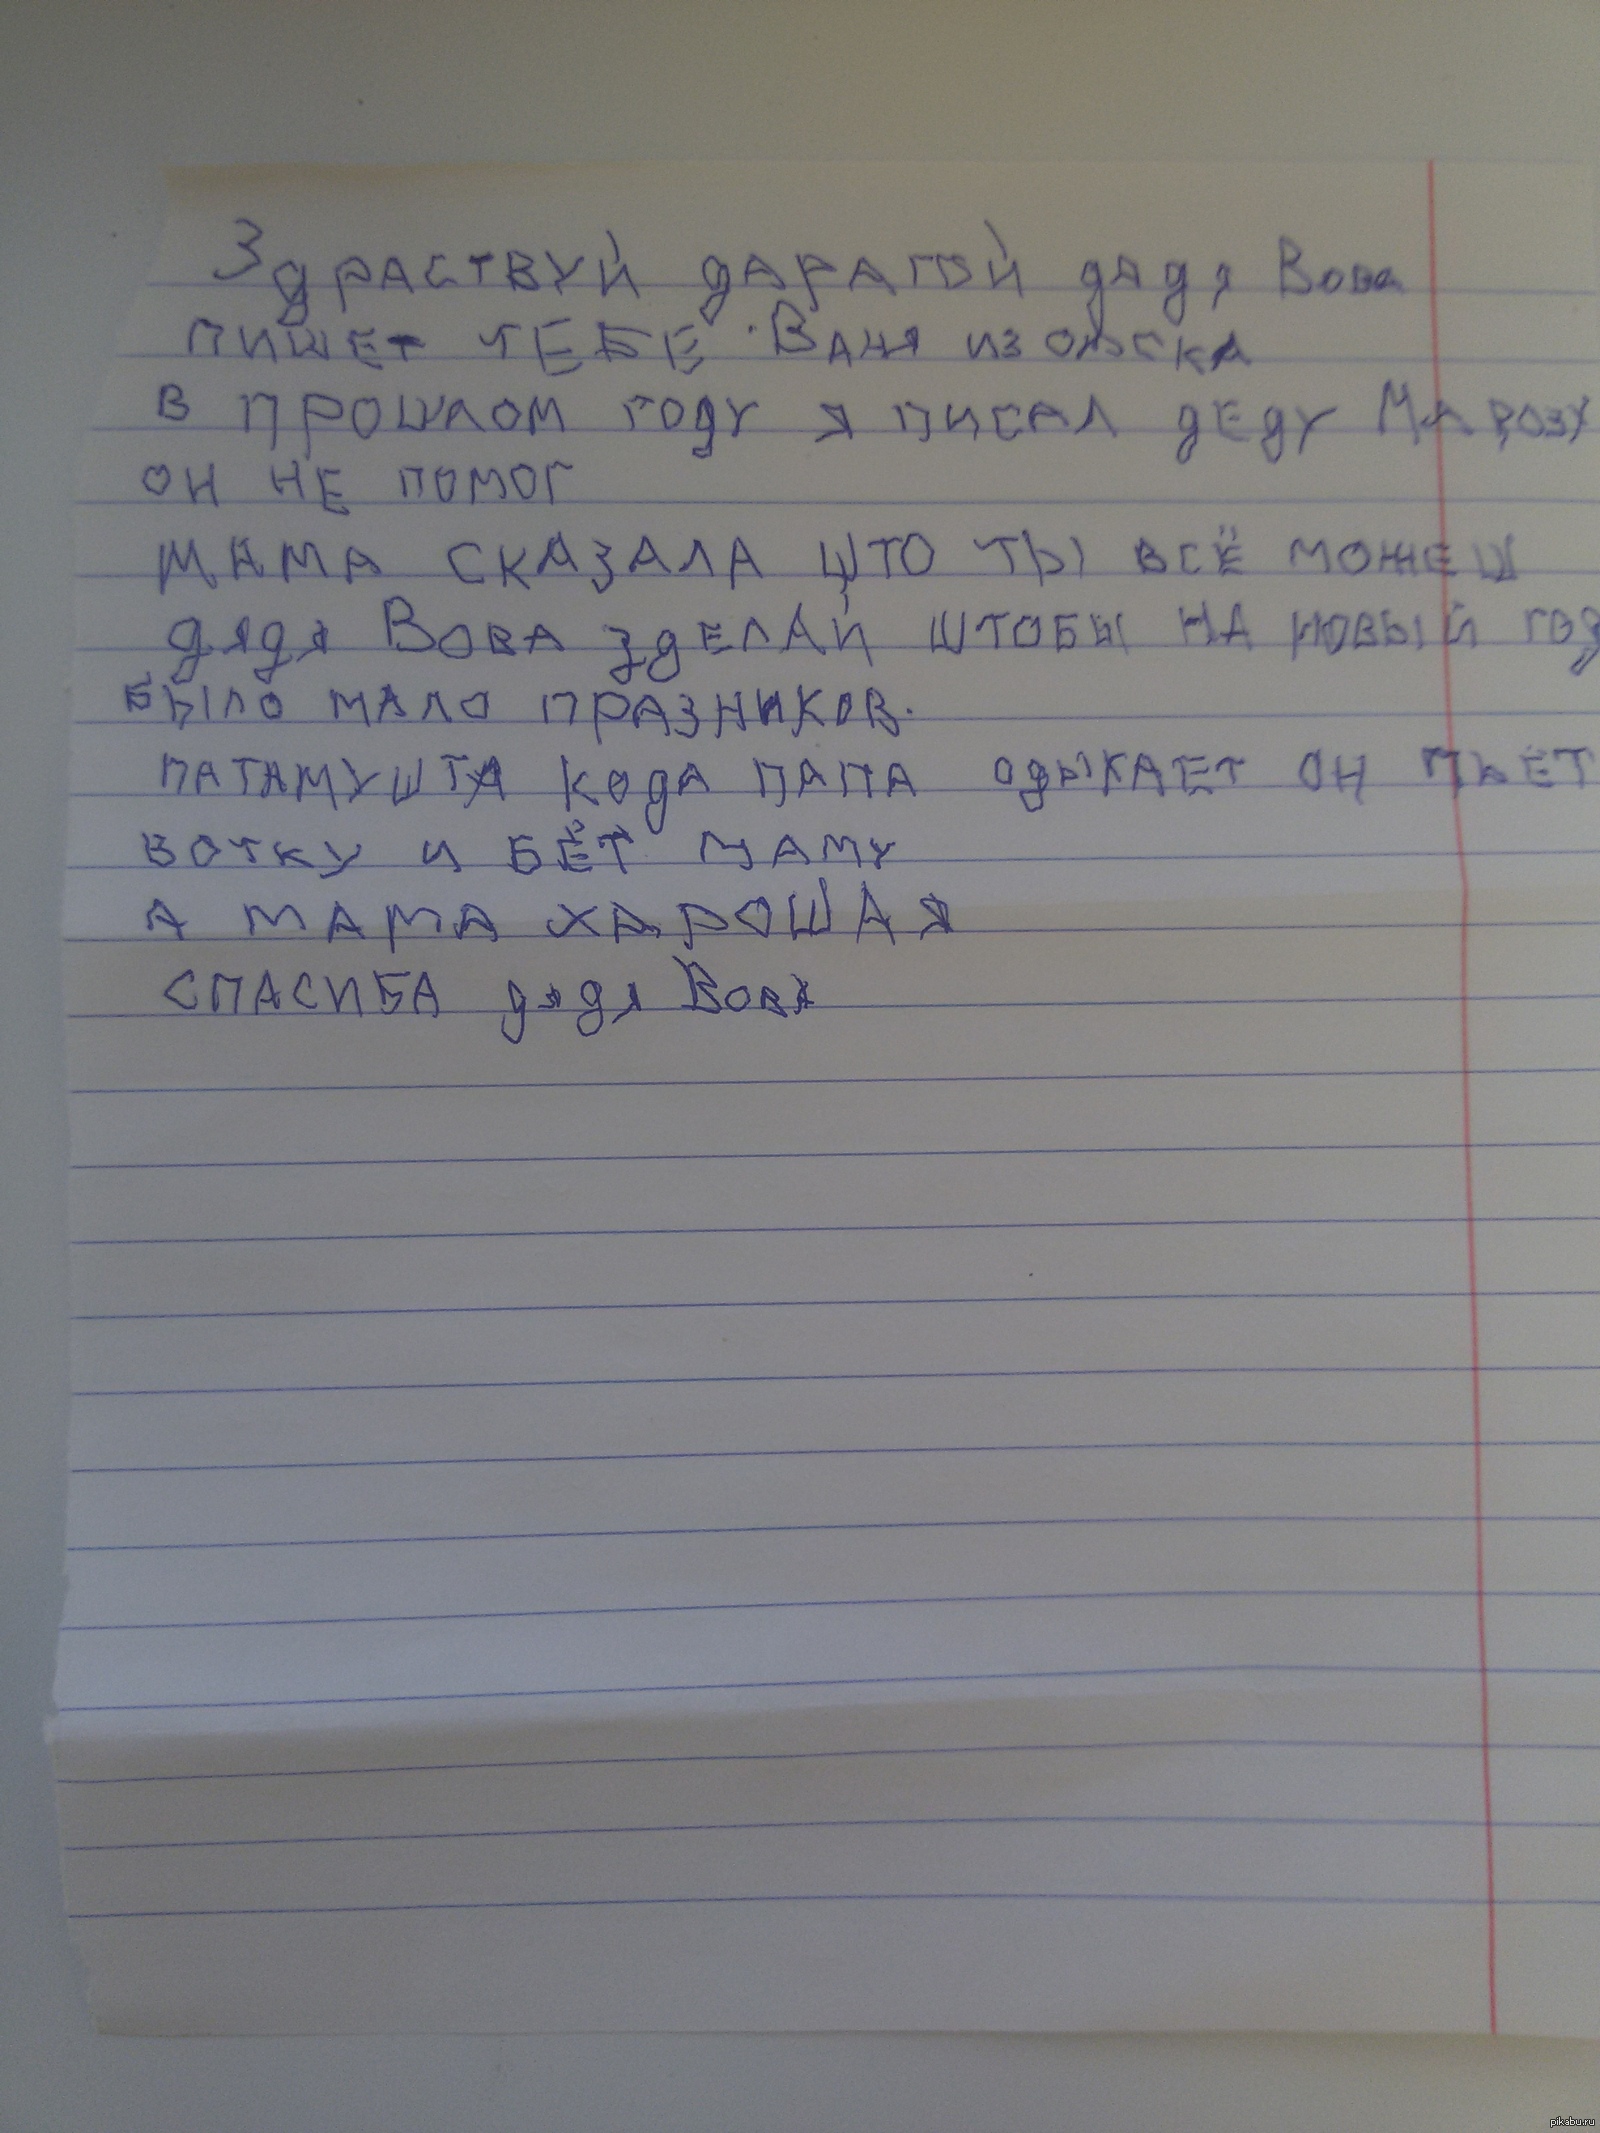 Здраствуй дарагой дядя Вова
пишет тебе Ваня из омска
в прошлом году я писал деду Марозу
он не помог
мама сказала што ты всё можеш
дядя Вова зделай штобы на новый год
было мало празников.
патамушта кода папа одыхает он пьёт
вотку и бёт маму
а мама харошая
спасиба дядя Вова
pikabu.ru